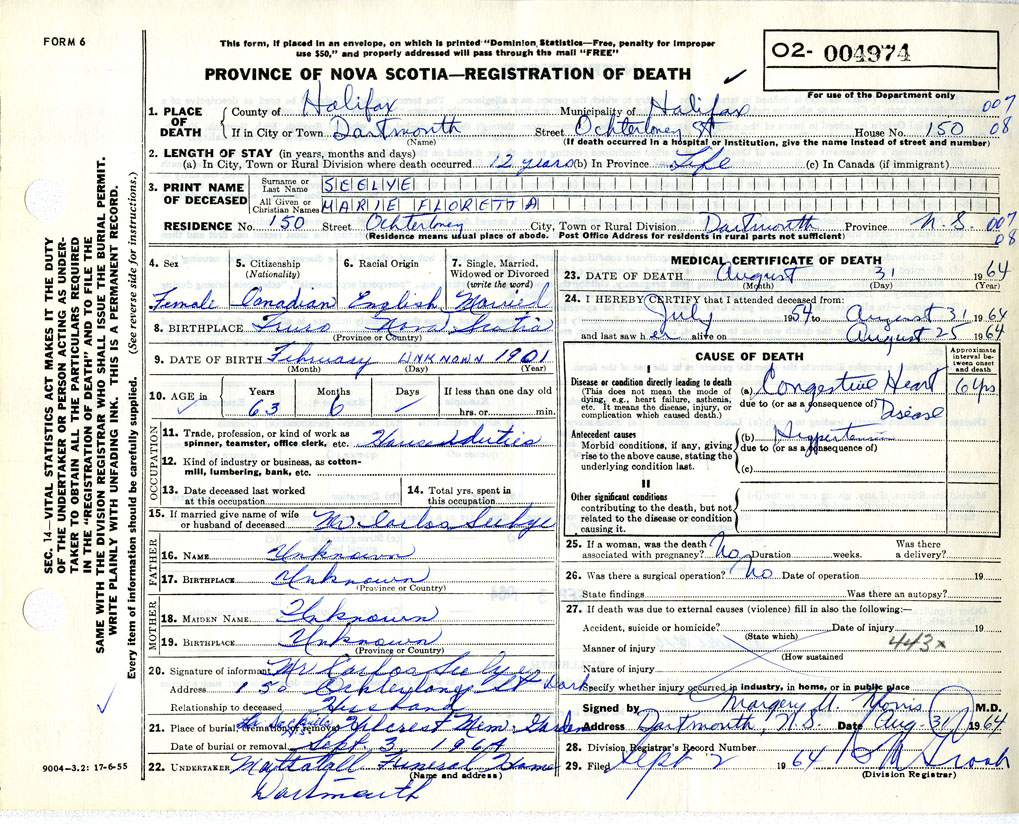 FORM 6
This form, if placed in an envelope, on which is printed "Dominion Statistics—Free, penalty for improper
use $50," and properly addressed will pass through the mail "FREE"
O2- 004974
PROVINCE OF NOVA SCOTIA—REGISTRATION OF DEATH
For use of the Department only
1. PLACE OF DEATH County of Halifax Municipality of Halifax 007
If in City or Town Dartmouth Street Ochterloney St House No. 150 08
(Name) (If death occurred in a hospital or institution, give the name instead of street and number)
2. LENGTH OF STAY (in years, months and days)
(a) In City, Town or Rural Division where death occurred 12 years (b) In Province Life (c) In Canada (if immigrant)
3. PRINT NAME OF DECEASED Surname or Last Name SEELYE
All Given or Christian Names MARIE FLORETTA
RESIDENCE No. 150 Street Ochterloney City, Town or Rural Division Dartmouth Province N.S. 007
(Residence means usual place of abode. Post Office Address for residents in rural parts not sufficient) 08
SEC. 14—VITAL STATISTICS ACT MAKES IT THE DUTY
OF THE UNDERTAKER OR PERSON ACTING AS UNDER-
TAKER TO OBTAIN ALL THE PARTICULARS REQUIRED
IN THE "REGISTRATION OF DEATH" AND TO FILE THE
SAME WITH THE DIVISION REGISTRAR WHO SHALL ISSUE THE BURIAL PERMIT.
WRITE PLAINLY WITH UNFADING INK. THIS IS A PERMANENT RECORD.
Every item of information should be carefully supplied. (See reverse side for instructions.)
4. Sex 5. Citizenship (Nationality) 6. Racial Origin 7. Single, Married, Widowed or Divorced (write the word)
Female Canadian English Married
8. BIRTHPLACE Truro Nova Scotia
(Province or Country)
9. DATE OF BIRTH February UNKNOWN 1901
(Month) (Day) (Year)
10. AGE in Years Months Days If less than one day old
63 6 — hrs. or min.
OCCUPATION
11. Trade, profession, or kind of work as
spinner, teamster, office clerk, etc. House duties
12. Kind of industry or business, as cotton-
mill, lumbering, bank, etc.
13. Date deceased last worked at this occupation
14. Total yrs. spent in this occupation
15. If married give name of wife
or husband of deceased Mr Carlos Seelye
FATHER
16. NAME Unknown
17. BIRTHPLACE Unknown
(Province or Country)
MOTHER
18. MAIDEN NAME Unknown
19. BIRTHPLACE Unknown
(Province or Country)
20. Signature of informant Mr Carlos Seelye
Address 150 Ochterloney St Dart
Relationship to deceased Husband
21. Place of burial, cremation or removal Hilcrest Mem. Gardens
Date of burial or removal Sept. 3, 1964
22. UNDERTAKER Mattatall Funeral Home
(Name and address)
Dartmouth
9004—3.2: 17-6-55
MEDICAL CERTIFICATE OF DEATH
23. DATE OF DEATH August 31 1964
(Month) (Day) (Year)
24. I HEREBY CERTIFY that I attended deceased from:
July 1954 to August 31 1964
and last saw her alive on August 25 1964
CAUSE OF DEATH
Approximate interval be-tween onset and death
I
Disease or condition directly leading to death
(This does not mean the mode of
dying, e.g., heart failure, asthenia,
etc. It means the disease, injury, or
complication which caused death.)
(a) Congestive Heart 6 yrs
due to (or as a consequence of) Disease
Antecedent causes
Morbid conditions, if any, giving
rise to the above cause, stating the
underlying condition last.
(b) Hypertension
due to (or as a consequence of)
(c)
II
Other significant conditions
contributing to the death, but not
related to the disease or condition
causing it.
25. If a woman, was the death associated with pregnancy? No Duration weeks. Was there a delivery?
26. Was there a surgical operation? No Date of operation 19
State findings Was there an autopsy?
27. If death was due to external causes (violence) fill in also the following:—
Accident, suicide or homicide? Date of injury 19
(State which) 443x
Manner of injury
(How sustained
Nature of injury
Specify whether injury occurred in industry, in home, or in public place
Signed by Margery M. Morris M.D.
Address Dartmouth, N.S. Date Aug. 31 1964
28. Division Registrar's Record Number
29. Filed Sept 2 1964
(Division Registrar)